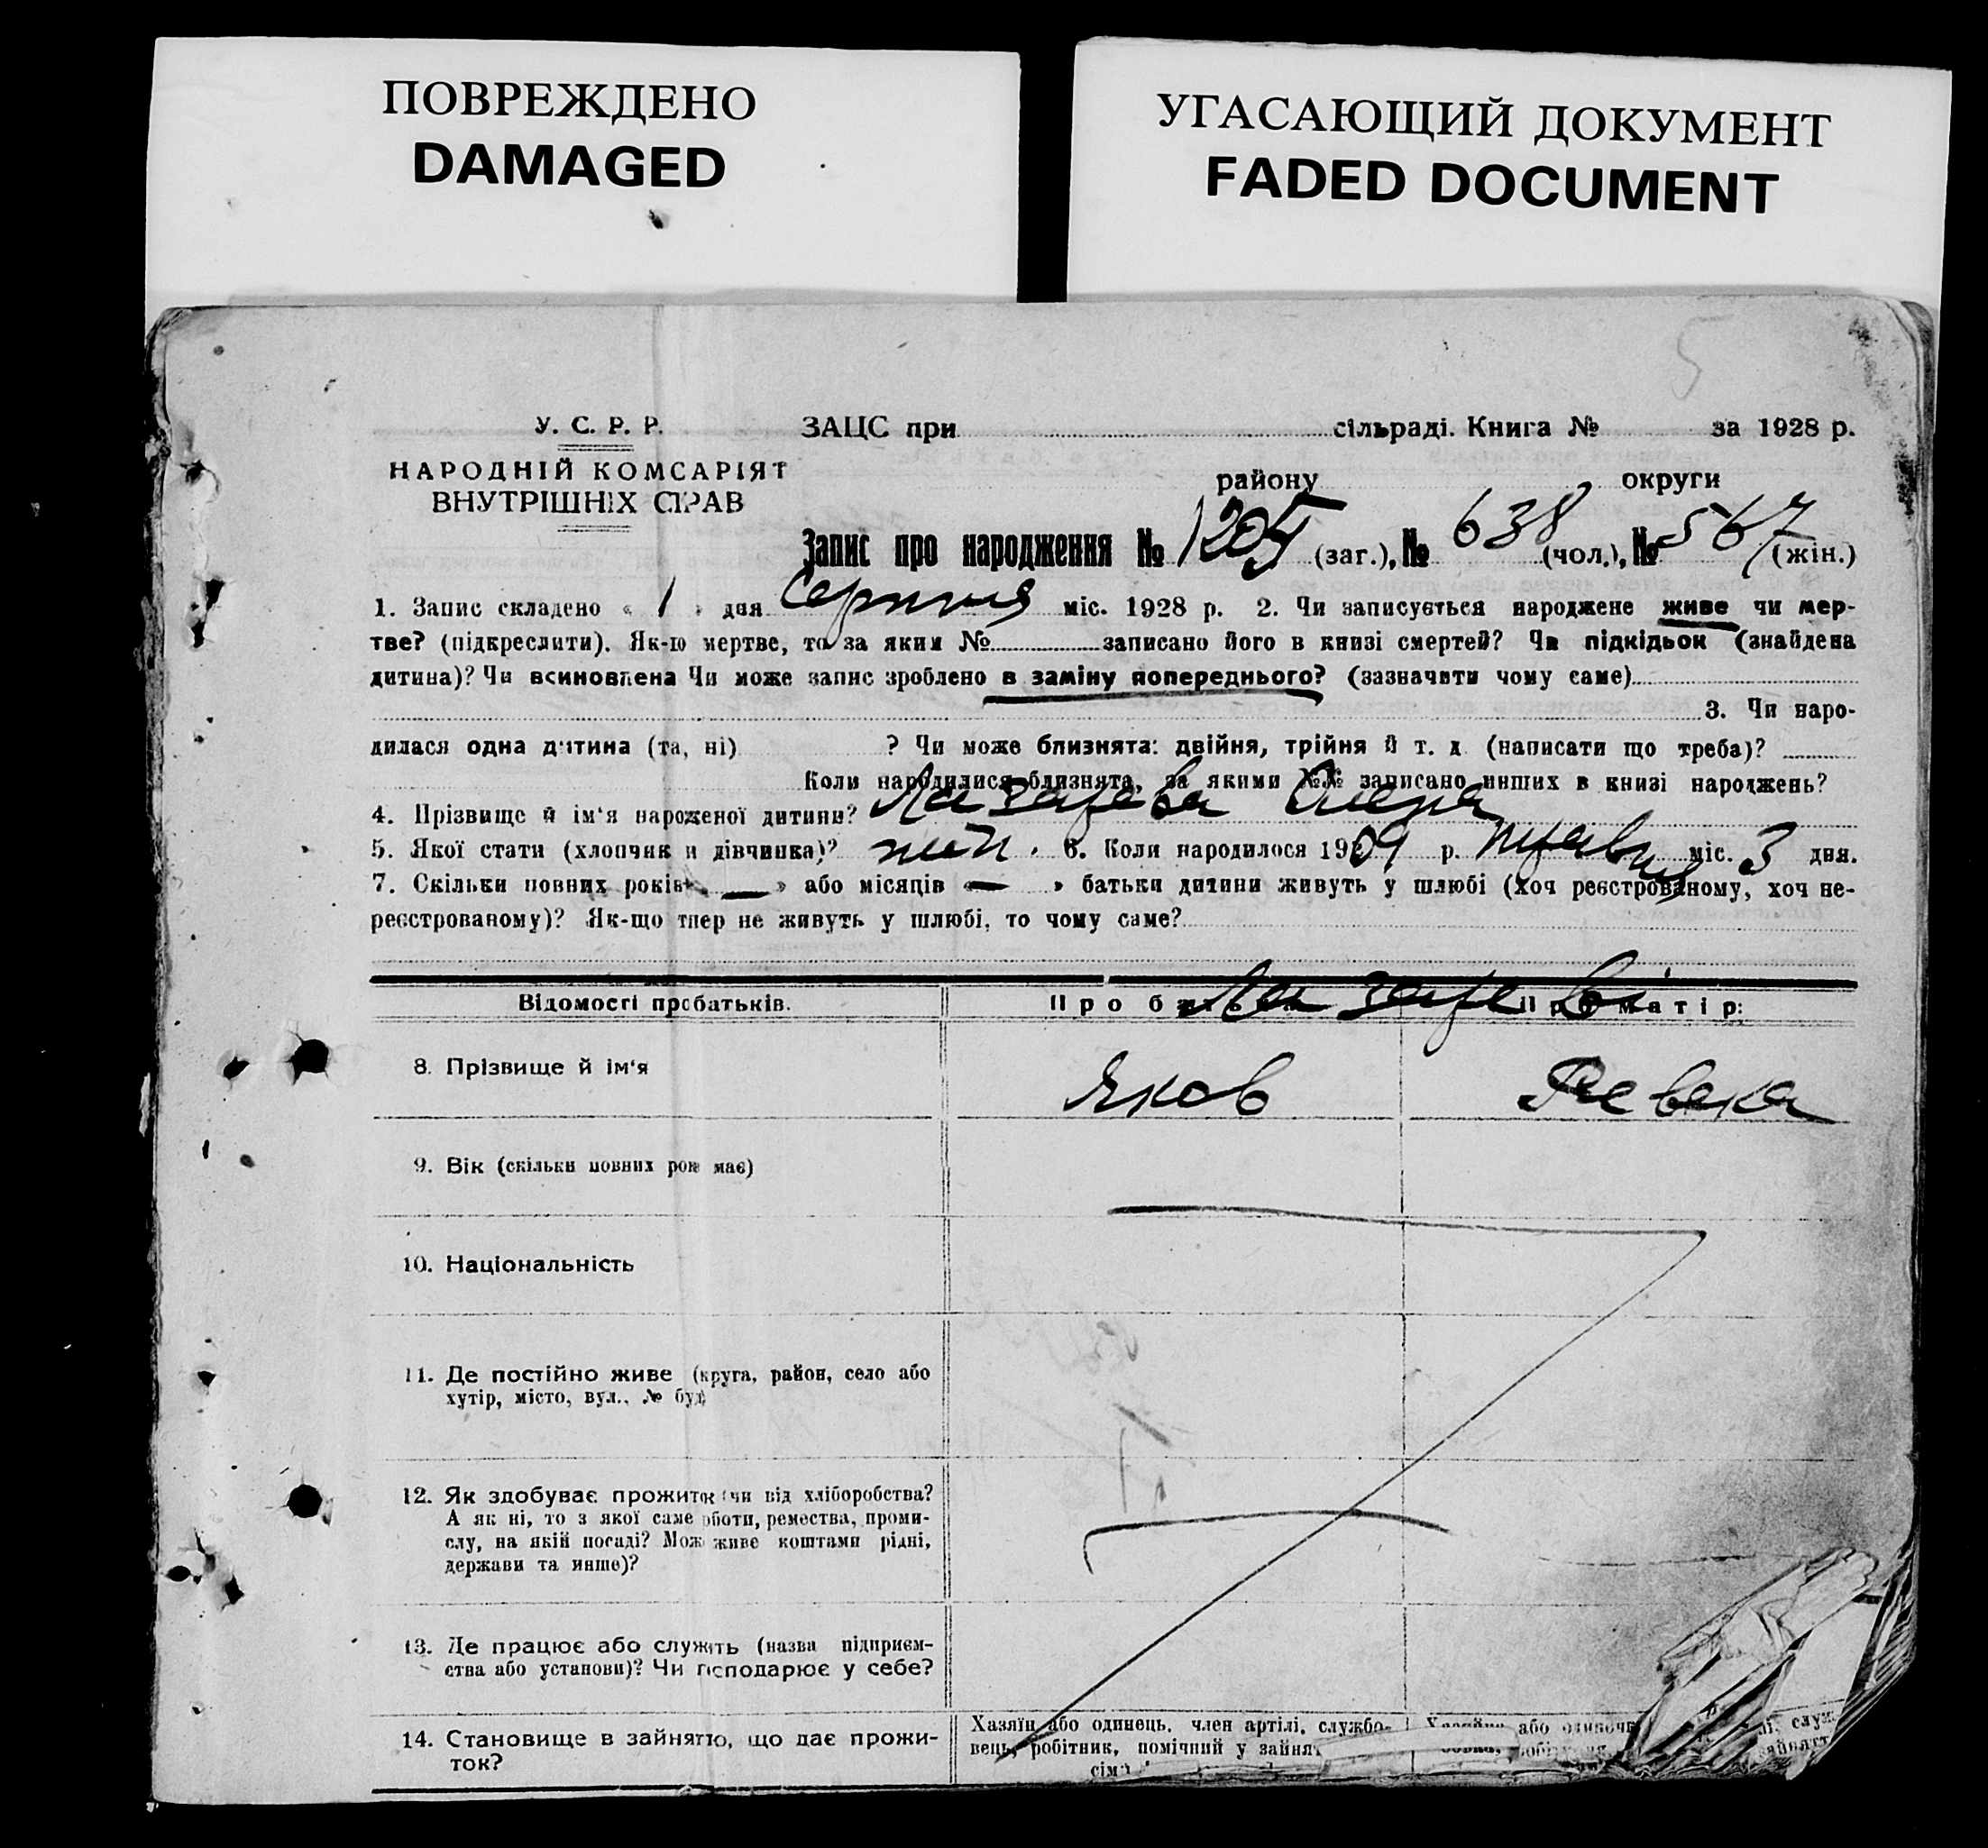 ПОВРЕЖДЕНО
DAMAGED
УГАСАЮЩИЙ ДОКУМЕНТ
FADED DOCUMENT
5
У. С. Р. Р.
НАРОДНІЙ КОМСАРІЯТ
ВНУТРІШНІХ СПРАВ
ЗАЦС при сільраді. Книга № за 1928 р.
району округи
Запис про народження № 1205 (заг.), № 638 (чол.), № 567 (жін.)
1. Запис складено « 1 » дня Серпня міс. 1928 р. 2. Чи записується народжене живе чи мер-
тве? (підкреслити). Як-ю мертве, то за яким № записано його в книзі смертей? Чи підкідьок (знайдена
дитина)? Чи всиновлена Чи може запис зроблено в заміну попереднього? (зазначити чому саме)
3. Чи наро-
дилася одна дитина (та, ні) ? Чи може близнята: двійня, трійня й т. д. (написати що треба)?
Коли народилися близнята, за якими №№ записано инших в книзі народжень?
4. Прізвище й ім'я нароженої дитини? Лазарева
5. Якої стати (хлопчик и дівчинка)? жін. 6. Коли народилося 1909 р. травня міс. 3 дня.
7. Скільки повних років « — » або місяців « — » батьки дитини живуть у шлюбі (хоч реєстрованому, хоч не-
реєстрованому)? Як-що тпер не живуть у шлюбі, то чому саме?
Відомості про батьків. Про батька Про матір:
Лазареві
8. Прізвище й ім'я Яков Ревека
9. Вік (скільки повних рок має)
10. Національність
11. Де постійно живе (круга, район, село або
хутір, місто, вул., № буд
12. Як здобуває прожиток (чи від хліборобства?
А як ні, то з якої саме оботи, ремества, проми-
слу, на якій посаді? Мож живе коштами рідні,
держави та инше)?
13. Де працює або служить (назва підприєм-
ства або установи)? Чи господарює у себе?
14. Становище в зайняттю, що дає прожи-
ток?
Хазяїн або одинець, член артілі, службо-
вець, робітник, помічний у зайня
сім'ї
або одиночк